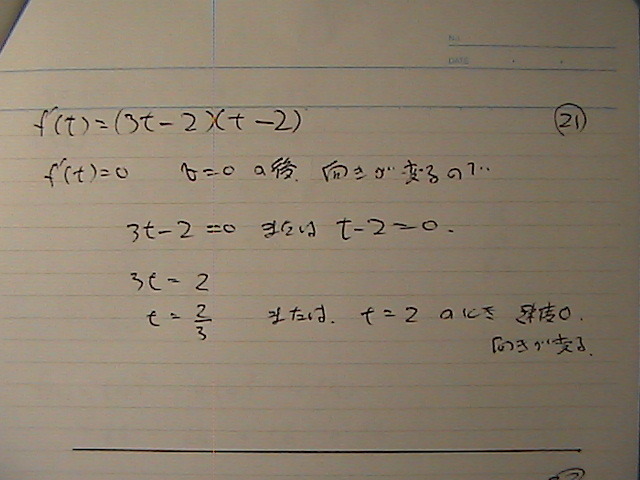 NO.
DATE
f'(t)=(3t-2)(t-2)
㉑
f'(t)=0 v=0 の後、向きが変るので
3t-2=0 または t-2=0.
3t=2
t=2/3 または、t=2 のとき 速度0.
向きが変る.